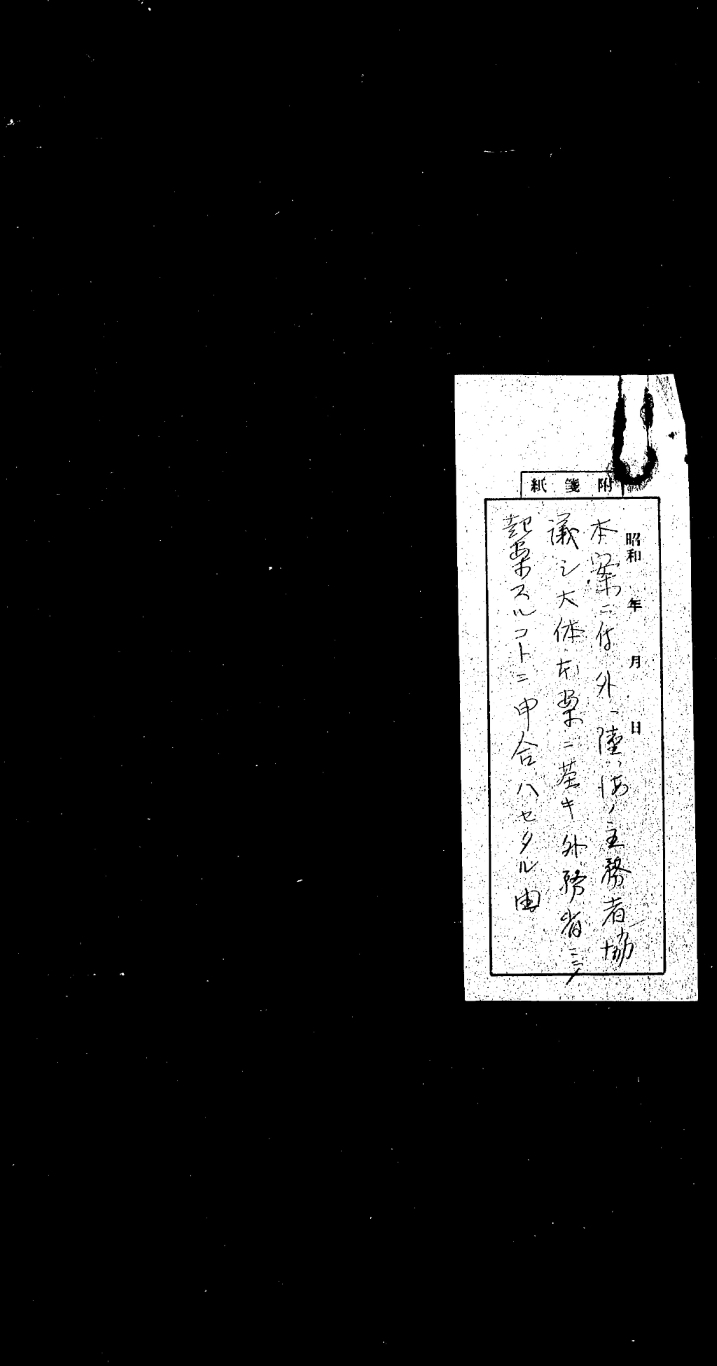 附箋紙
昭和　年　月　日
本案ニ付外、陸、海ノ主務者協
議シ大体本案ニ基キ外務省ニテ
起案スルコトニ申合ハセタル由